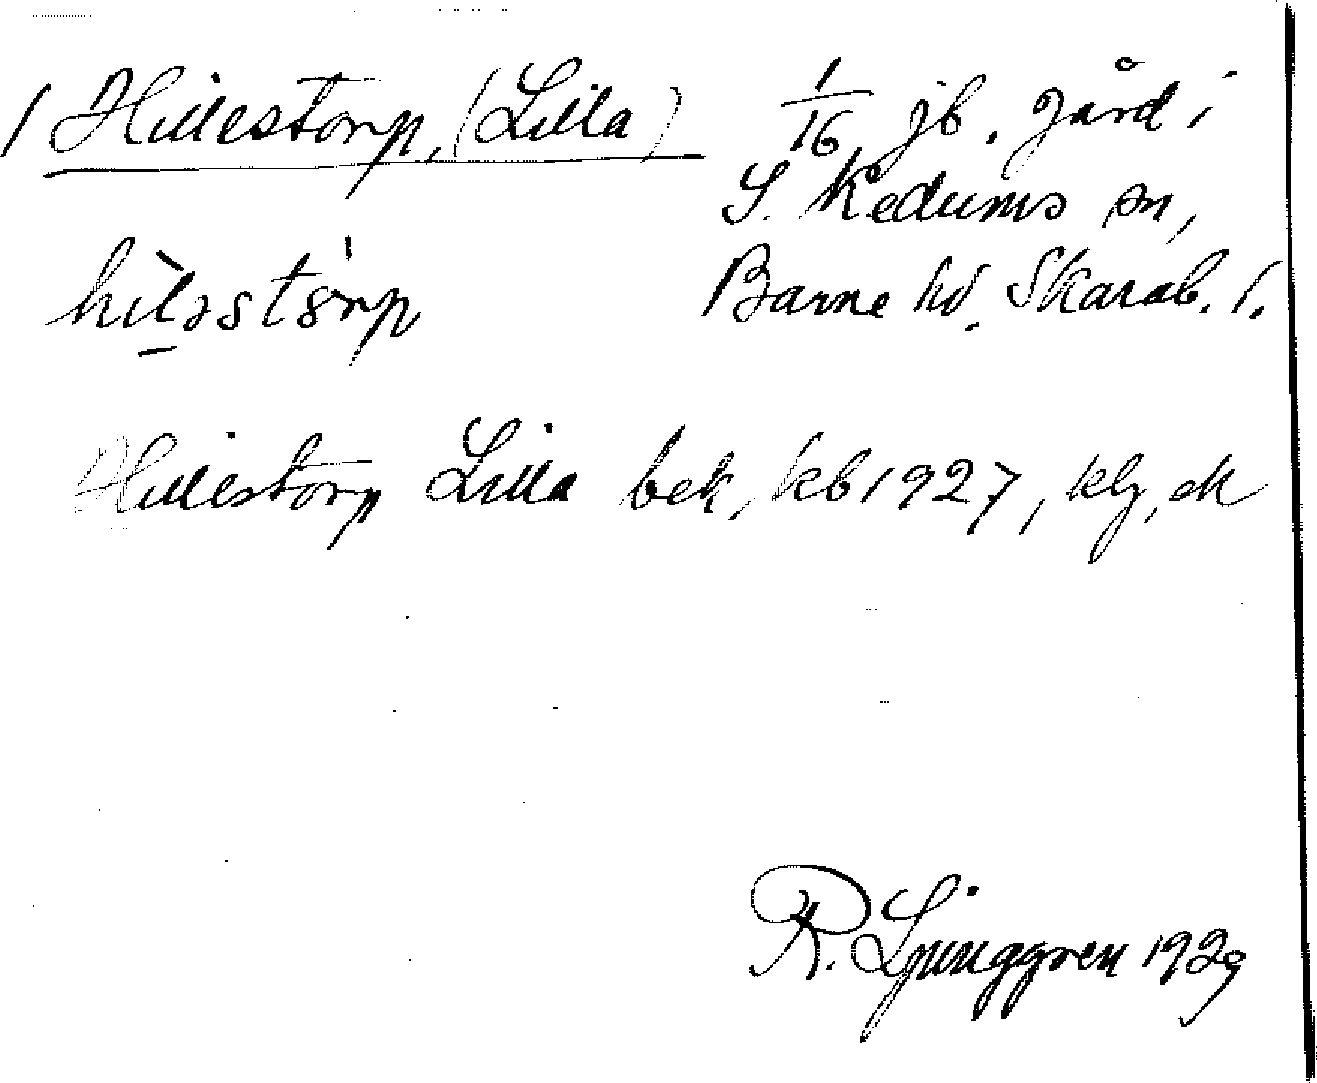 / Hillestorp, (Lilla) 1/16 jb. gård i
S. Kedums sn,
Barne hd. Skarab. l.
Hillestorp Lilla bek, kb 1927, klg, ek
R. Ljunggren 1929